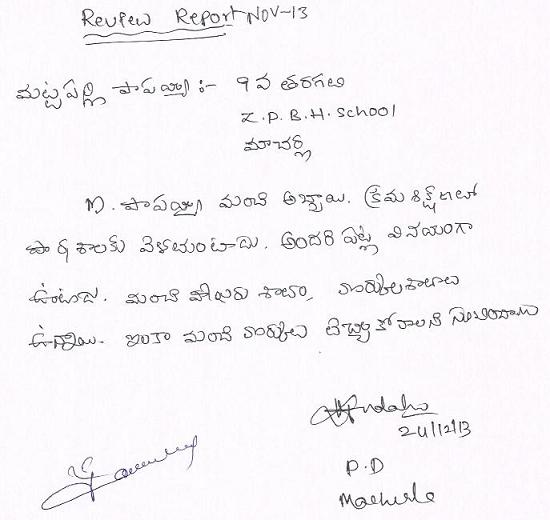 Review Report NOV-13
మట్టపల్లి పాపయ్య :- 9 వ తరగతి
Z.P.B.H. School
మాచర్ల
M. పాపయ్య మంచి అబ్బాయి. క్రమశిక్షణతో
పాఠశాలకు వెళుతుంటాడు. అందరి పట్ల వినయంగా
ఉంటాడు. మంచి హాజరు శాతం, మార్కుల శాతాలు
ఉన్నాయి. ఇంకా మంచి మార్కులు తెచ్చుకోవాలని
24/12/13
P.D
Macherla